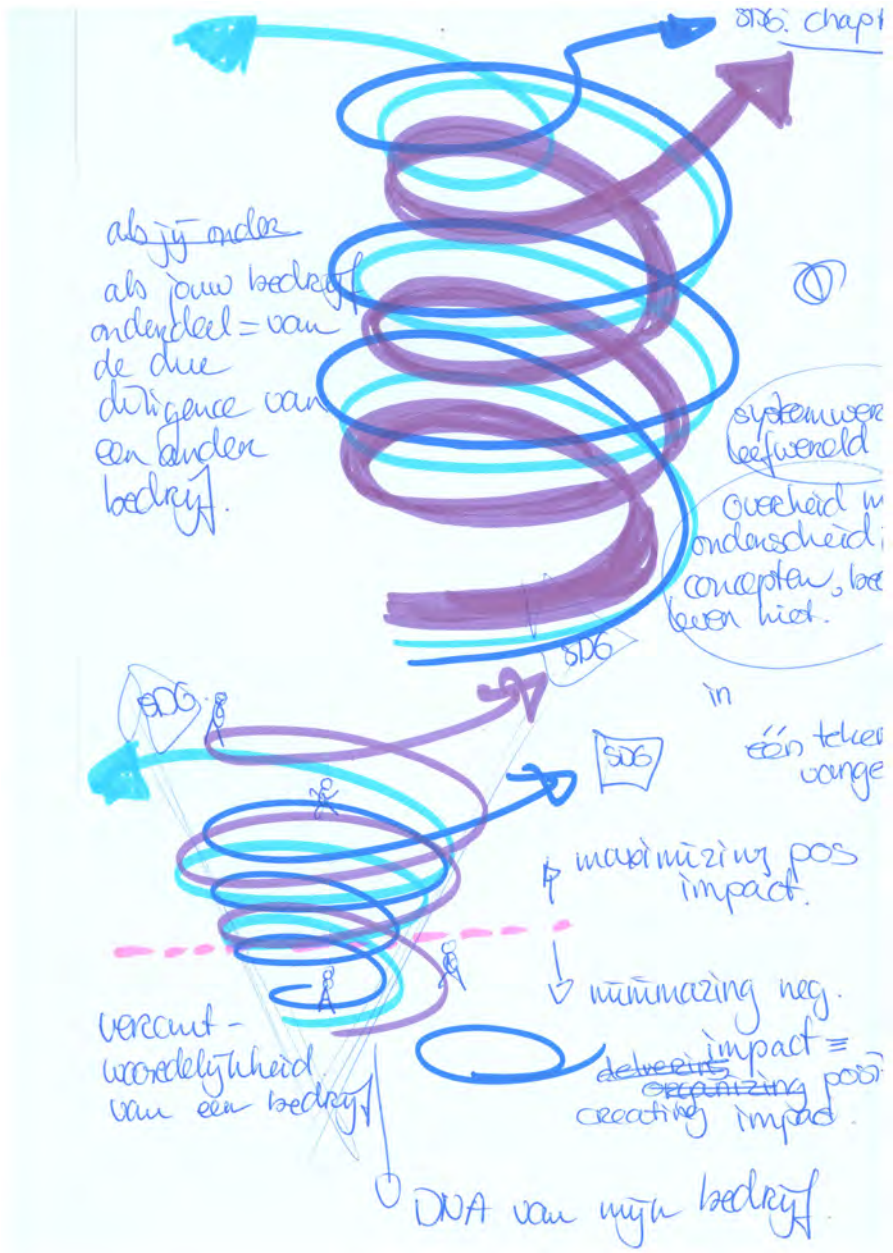 SDG: chapt
als jij onder
als jouw bedrijf
onderdeel = van
de due
diligence van
een ander
bedrijf.
systemwer
leefwereld
overheid m
onderscheid
concepten, be
leven niet.
in
één teken
vange
SDG
SDG
SDG
maximizing pos
impact.
minimazing neg.
impact =
delivering
organizing posi
creating impac
verant-
woordelijkheid
van een bedrijf
DNA van mijn bedrijf.